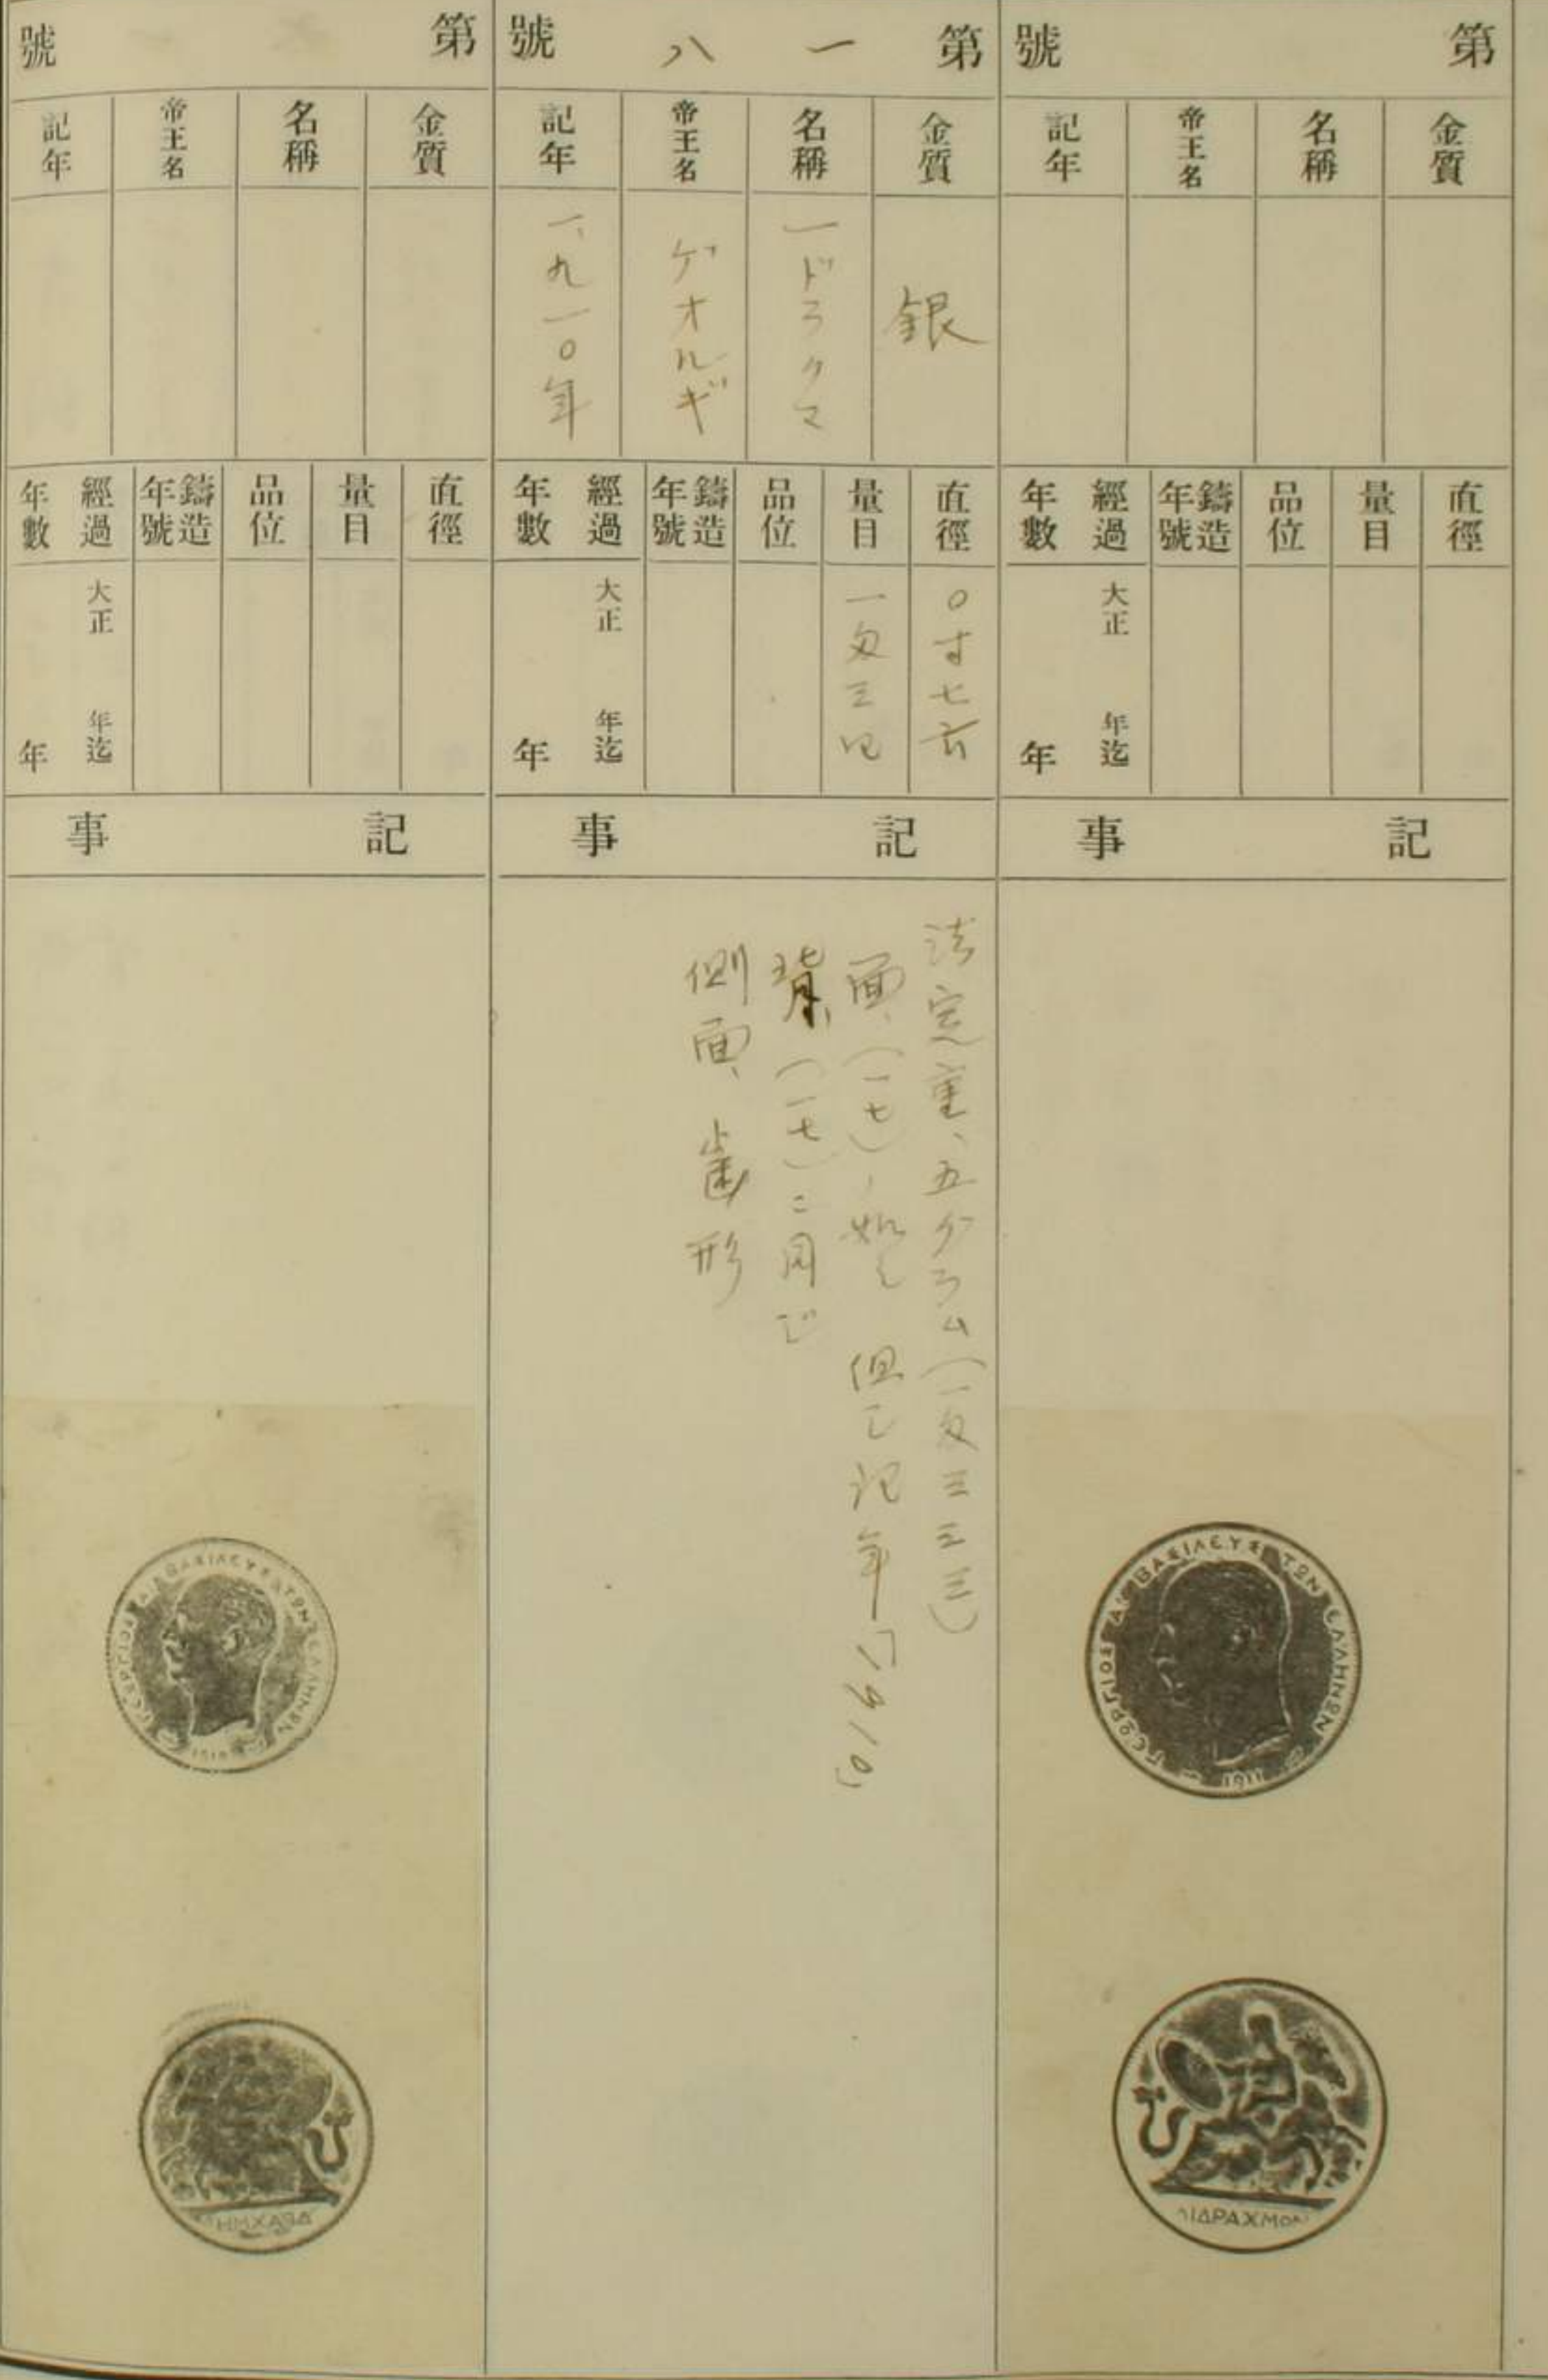 第 號
金質
名稱
帝王名
記年
直徑
量目
品位
鑄造年號
經過年數
大正 年迄
年
記事
ΓΕΩΡΓΙΟΣ Α! ΒΑΣΙΛΕΥΣ ΤΩΝ ΕΛΛΗΝΩΝ
1911
ΔΙΔΡΑΧΜΟΝ
第一八號
金質
銀
名稱
一ドラクマ
帝王名
ゲオルギ
記年
一、九一〇年
直徑
〇寸七六
量目
一匁三四
品位
鑄造年號
經過年數
大正 年迄
年
記事
法定量、五グラム(一匁三三三)
面、(一七)ノ如シ 但シ記年「1910」
背、(一七)ニ同ジ
側面、歯形
第 號
金質
名稱
帝王名
記年
直徑
量目
品位
鑄造年號
經過年數
大正 年迄
年
記事
ΓΕΩΡΓΙΟΣ Α! ΒΑΣΙΛΕΥΣ ΤΩΝ ΕΛΛΗΝΩΝ
1910